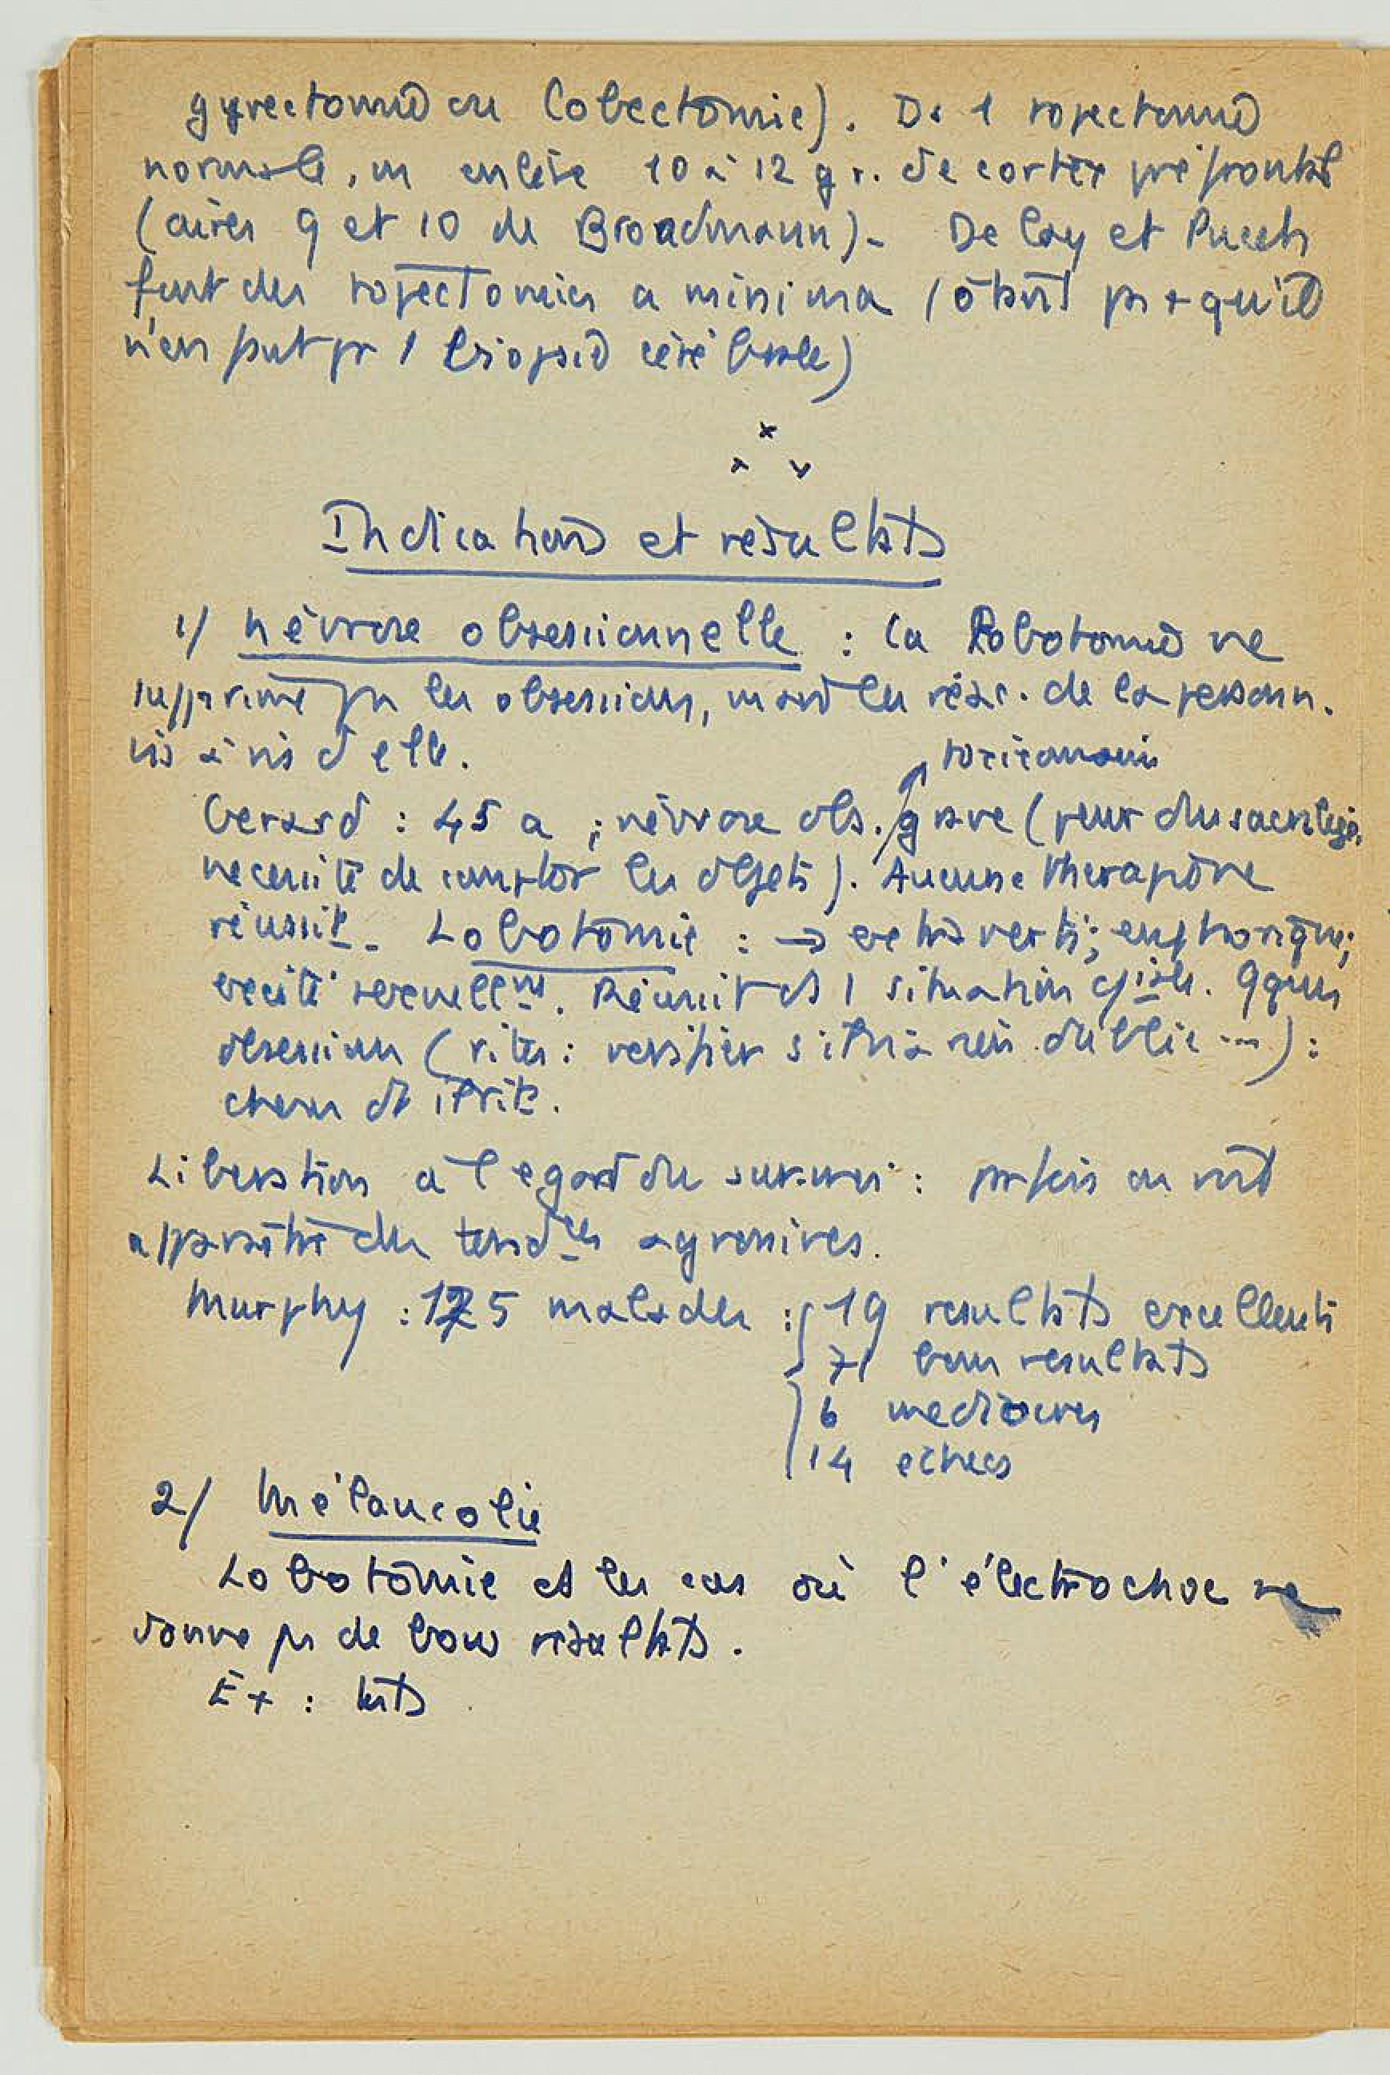 gyrectomie ou lobectomie). Ds 1 topectomie
normale, on enlève 10 à 12 gr. de cortex préfrontal
(aires 9 et 10 de Broadmann). Delay et Puech
font des topectomies a minima ( pr + qu'il
n'en faut pr 1 biopsie cérébrale)
Indications et résultats
1/ névrose obsessionnelle : la lobotomie ne
supprime pas les obsessions, mais les réac. de la personn.
vis à vis d'elle.
toxicomanie
Gerard : 45 a ; névrose obs. grave (peur des sacrilèges,
necessité de compter les objets). Aucune thérapeutique
réussit. Lobotomie : → extraverti; euphorique;
excité sexuellemt. Réussit ds 1 situation Qques
obsessions (rites : verifier s'il n'a rien oublié ...) :
Liberation a l'egard du sur-moi : parfois on voit
apparaître des tendces agressives.
Murphy : 125 malades : 19 resultats excellents
71 bons resultats
6 mediocres
14 echecs
2/ Mélancolie
Lobotomie ds les cas où l'électrochoc ne
donne pas de bons résultats.
Ex :